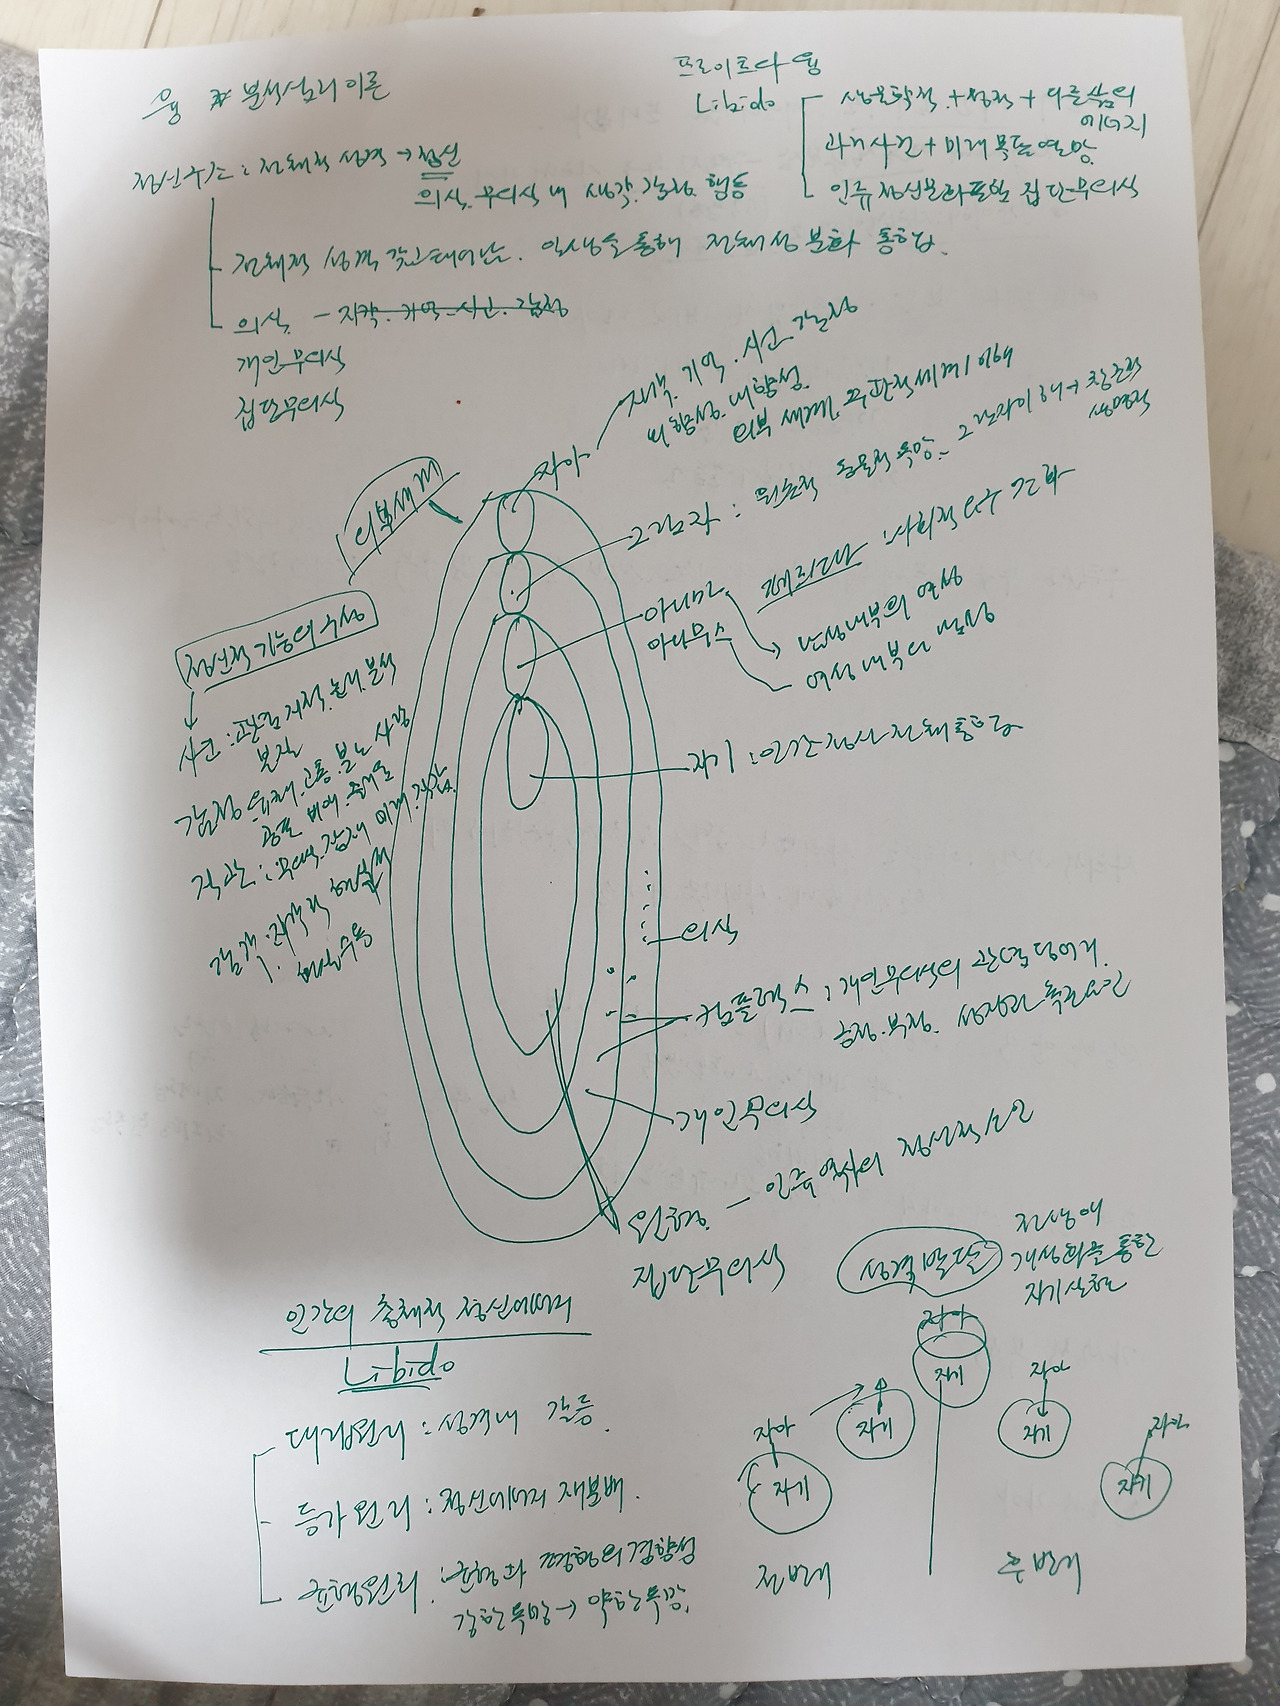 융 분석심리이론
프로이트 다 융
Libido
생물학적 + 성적 + 다른 삶의
에너지
과거사건 + 미래 목표 열망
인류 정신문화 포함 집단무의식
정신구조 : 전체적 성격 → 정신
의식. 무의식 내 생각. 감정. 행동
전체적 성격 갖고 태어남. 인생을 통해 전체성 분화 통합.
의식. - 지각. 기억. 사고. 감정
개인무의식
집단무의식
자아
지각. 기억. 사고. 감정
외향성. 내향성.
외부 세계. 주관적세계 이해
외부세계
그림자 : 원초적 동물적 욕망. 그림자 이해 → 창조적
생명력
아니마
아니무스
페르소나 : 사회적 요구
남성 내부의 여성
여성 내부의 남성
정신적 기능의 수성
사고 : 관념 지적. 논리. 분석
감정 유쾌. 고통. 분노 사랑
공포 비애. 즐거움
직관 : 무의식. 잠재 미래. 직감.
감각.
자기 : 인간정신 전체 통합
의식
컴플렉스 : 개인무의식의 관념 덩어리.
긍정. 부정.
개인무의식
원형. - 인류 역사의 정신적 소인
집단무의식
성격발달
전생애
개성화를 통한
자기실현
인간의 총체적 정신에너지
Libido
대립원리 : 성격 내 갈등.
등가원리 : 정신에너지 재분배.
균형원리 : 균형과 평형의 경향성
강한 욕망 → 약한 욕망.
자아
자기
자기
자아
자기
자아
자기
자아
자기
전반기
후반기